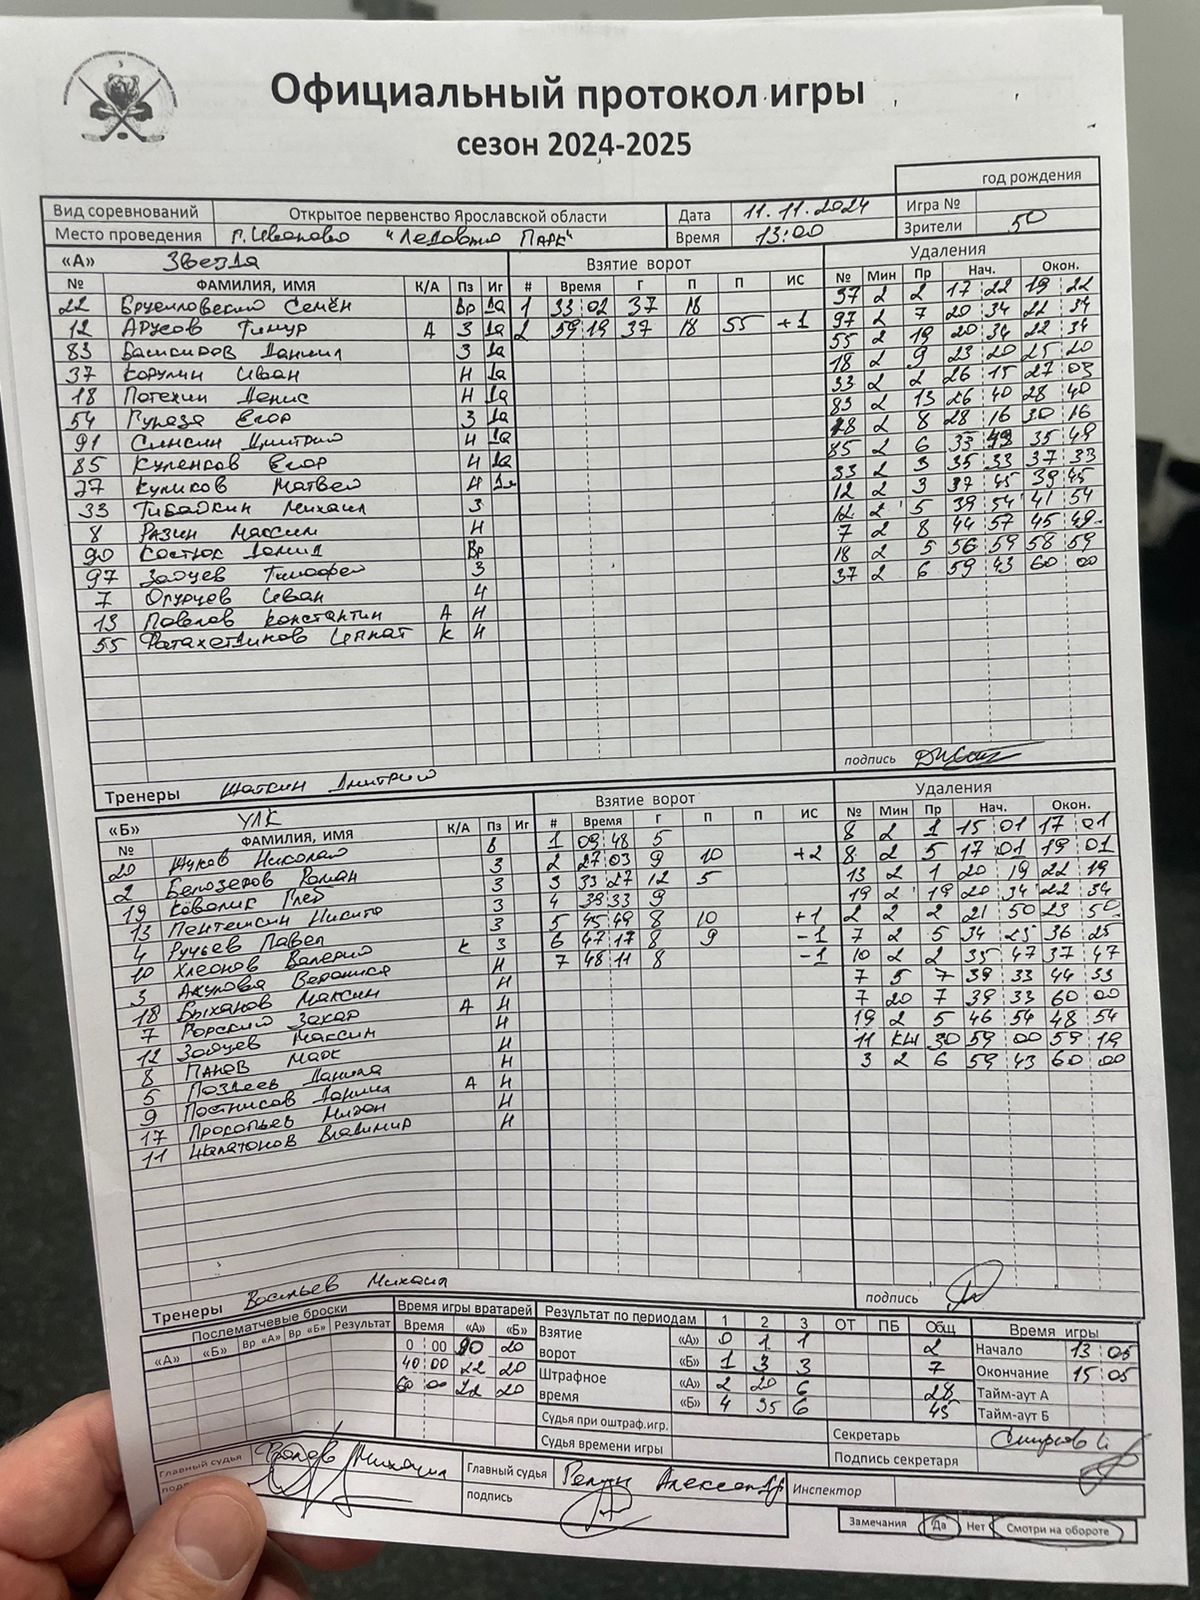 Официальный протокол игры
сезон 2024-2025
год рождения
Вид соревнований Открытое первенство Ярославской области Дата 11.11.2024 Игра №
Место проведения г. Иваново "Ледовый Парк" Время 13:00 Зрители 50
«А» Звезда Взятие ворот Удаления
№ ФАМИЛИЯ, ИМЯ К/А Пз Иг # Время Г П П ИС № Мин Пр Нач. Окон.
22 Семён Вр Да 1 33 02 37 18 37 2 2 17 22 19 22
12 Арусов Тимур А З Да 2 59 19 37 18 55 +1 97 2 7 20 34 22 34
83 Даниил З Да 55 2 19 20 34 22 34
37 Иван Н Да 18 2 9 23 20 25 20
18 Потехин Денис Н Да 33 2 2 26 15 27 03
54 Егор З Да 83 2 13 26 40 28 40
91 Синсин Дмитрий Н Да 2 8 28 16 30 16
85 Егор Н Да 85 2 6 33 35 49
27 Куликов Матвей Н Да 33 2 3 35 33 37 33
33 Михаил З 12 2 3 37 45 39 45
8 Разин Максим Н 12 2 5 39 54 41 54
90 Костюк Данил Вр 7 2 8 44 57 45 49
97 Зайцев Тимофей З 18 2 5 56 59 58 59
7 Огурцев Иван Н 37 2 6 59 43 60 00
13 Павлов Константин А Н
55 К Н
Тренеры Шаткин Дмитрий подпись
«Б» УЛК Взятие ворот Удаления
№ ФАМИЛИЯ, ИМЯ К/А Пз Иг # Время Г П П ИС № Мин Пр Нач. Окон.
20 Жуков Николай В 1 09 48 5 8 2 1 15 01 17 01
2 Белозеров Роман З 2 27 03 9 10 +2 8 2 5 17 01 19 01
19 Ковалик Глеб З 3 33 27 12 5 13 2 1 20 19 22 19
13 Никита З 4 38 33 9 19 2 19 20 34 22 34
4 Ручьев Павел З 5 45 49 8 10 +1 2 2 2 21 50 23 50
10 Хлеонов Валерий К З 6 47 17 8 9 -1 7 2 5 34 25 36 25
3 Акулова Вероника Н 7 48 11 8 -1 10 2 2 35 47 37 47
18 Быханов Максим Н 7 5 7 39 33 44 33
7 Горский Захар А Н 7 20 7 39 33 60 00
12 Зайцев Максим Н 19 2 5 46 54 48 54
8 Панов Марк Н 11 КШ 30 59 00 59 19
5 Поздеев Данила Н 3 2 6 59 43 60 00
9 Постнисов Даниил А Н
17 Прокопьев Н
11 Шалатонов Владимир Н
Тренеры Васильев Михаил подпись
Послематчевые броски Время игры вратарей Результат по периодам 1 2 3 ОТ ПБ Общ Время игры
«А» «Б» Вр «А» Вр «Б» Результат Время «А» «Б» Взятие ворот «А» 0 1 1 2 Начало 13 05
0 00 90 20 «Б» 1 3 3 7 Окончание 15 05
40 00 22 20 Штрафное время «А» 2 20 6 28 Тайм-аут А
60 00 22 20 «Б» 4 35 6 45 Тайм-аут Б
Судья при оштраф.игр. Секретарь Смирнов
Судья времени игры Подпись секретаря
Главный судья Михаил Главный судья Александр Инспектор
подпись
Замечания Да Нет Смотри на обороте